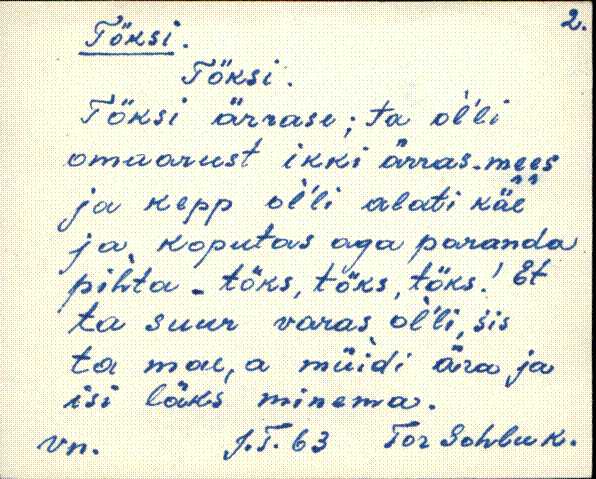 2.
Töksi.
Töksi.
Töksi ärrase; ta ol̀li
omaarust ikki ärras-mees
ja kepp ol̀li alati käe
ja koputas aga paranda
pihta - töks, töks, töks! Et
ta suur varas ol̀li, siis
ta mae, a müìdi ära ja
isi läks minema.
vn. J.T. 63 Tor